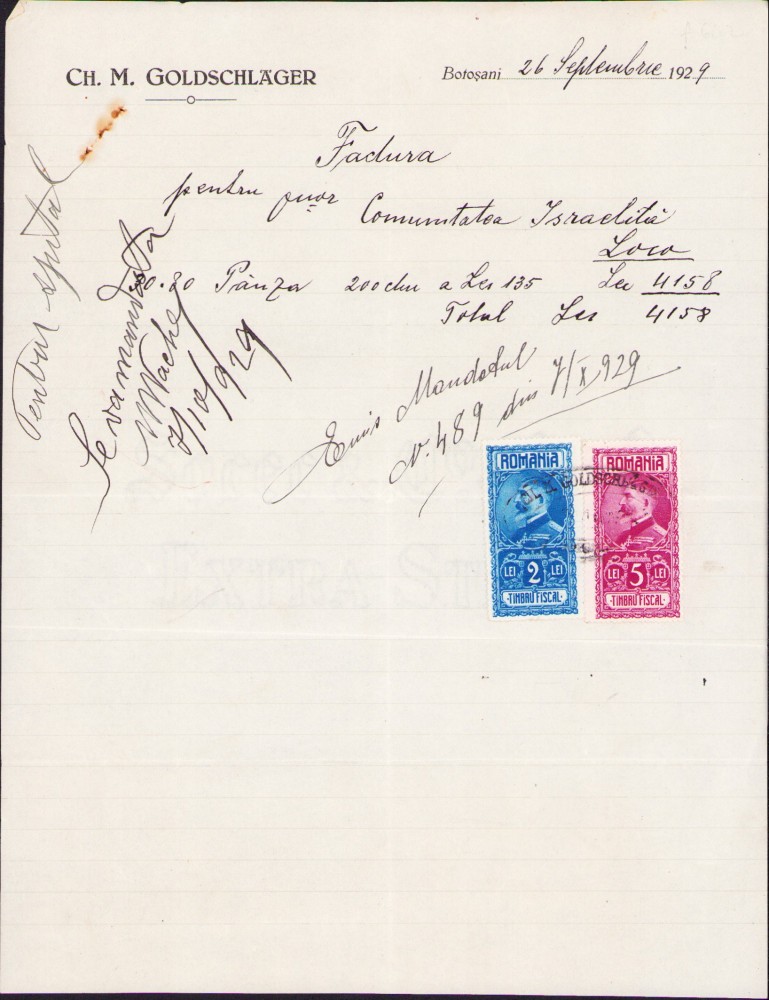 CH. M. GOLDSCHLÄGER
Botoșani 26 Septembrie 1929
Factura
pentru onor Comunitatea Israelită
Loco
30.80 Pânza 200 cm a Lei 135 Lei 4158
Total Lei 4158
Pentru spital
Se va mandata
7/10/929
Emis Mandatul
N. 489 din 7/X 929
ROMANIA
LEI 2 LEI
·TIMBRU FISCAL·
ROMANIA
LEI 5 LEI
·TIMBRU FISCAL·
GOLDSCHLÄG